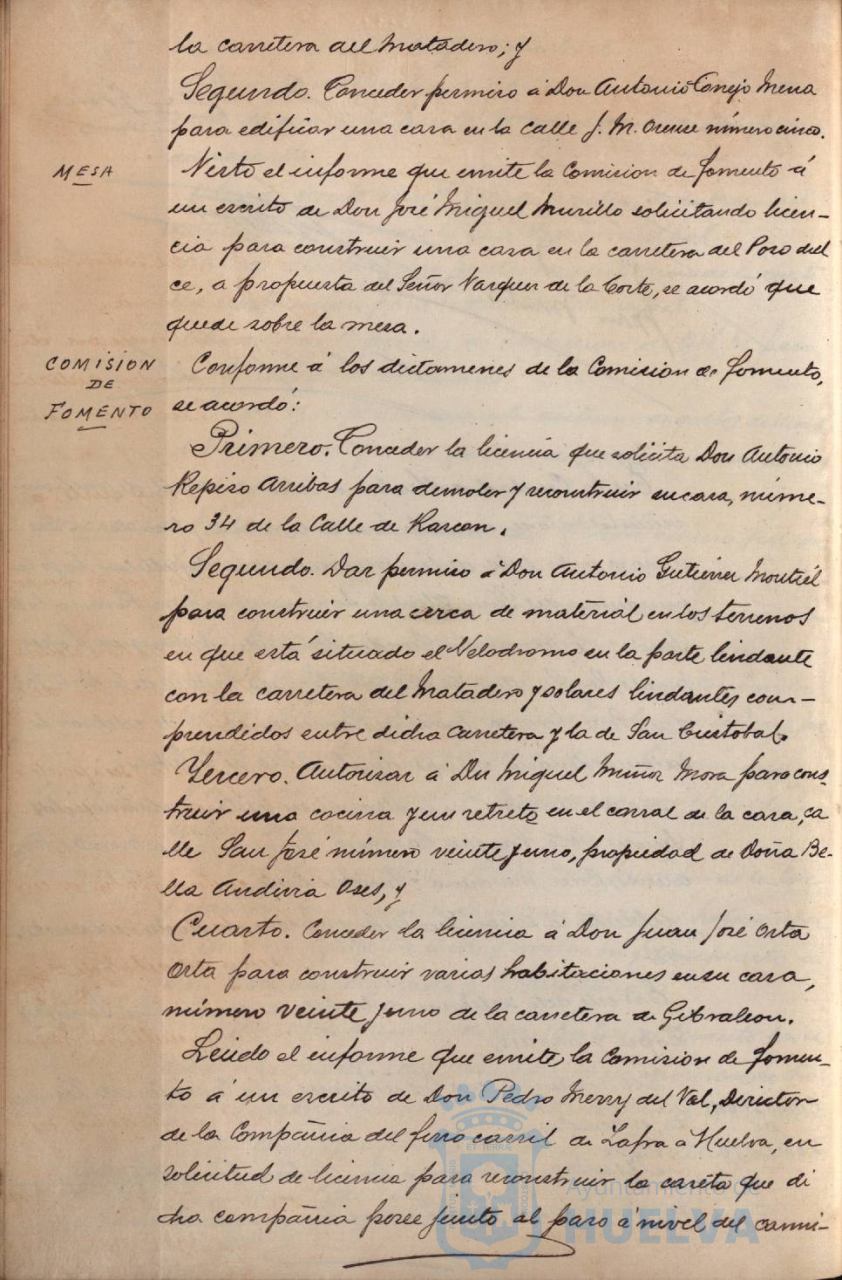 la carretera del Matadero; y
Segundo. Conceder permiso á Don Antonio Conejo Mena
para edificar una casa en la calle J. M. Orense número cinco.
MESA
Visto el informe que emite la Comision de Fomento á
un escrito de Don José Miguel Murillo solicitando licen-
cia para construir una casa en la carretera del Pozo dul
ce, a propuesta del Señor Vazquez de la Corte, se acordó que
quede sobre la mesa.
COMISION
DE
FOMENTO
Conforme á los dictamenes de la Comision de Fomento,
se acordó:
Primero. Conceder la licencia que solicita Don Antonio
Repiso Arribas para demoler y reconstruir su casa, núme-
ro 34 de la Calle de Rascon.
Segundo. Dar permiso á Don Antonio Gutierrez Montiél
para construir una cerca de material en los terrenos
en que está situado el Velodromo en la parte lindante
con la carretera del Matadero y solares lindantes com-
prendidos entre dicha carretera y la de San Cristobal.
Tercero. Autorizar á Don Miguel Muñoz Mora para cons-
truir una cocina y un retrete en el corral de la casa, ca
lle San José número veinte y uno, propiedad de Doña Be-
lla Andivia Oses, y
Cuarto. Conceder la licencia á Don Juan José Orta
Orta para construir varias habitaciones en su casa,
número veinte y uno de la carretera de Gibraleon.
Leido el informe que emite la Comision de Fomen-
to á un escrito de Don Pedro Merry del Val, Director
de la Compañia del ferro carril de Zafra á Huelva, en
solicitud de licencia para reconstruir la caseta que di
cha compañia posee junto al paso á nivel del cami-
Ayuntamiento de
HUELVA